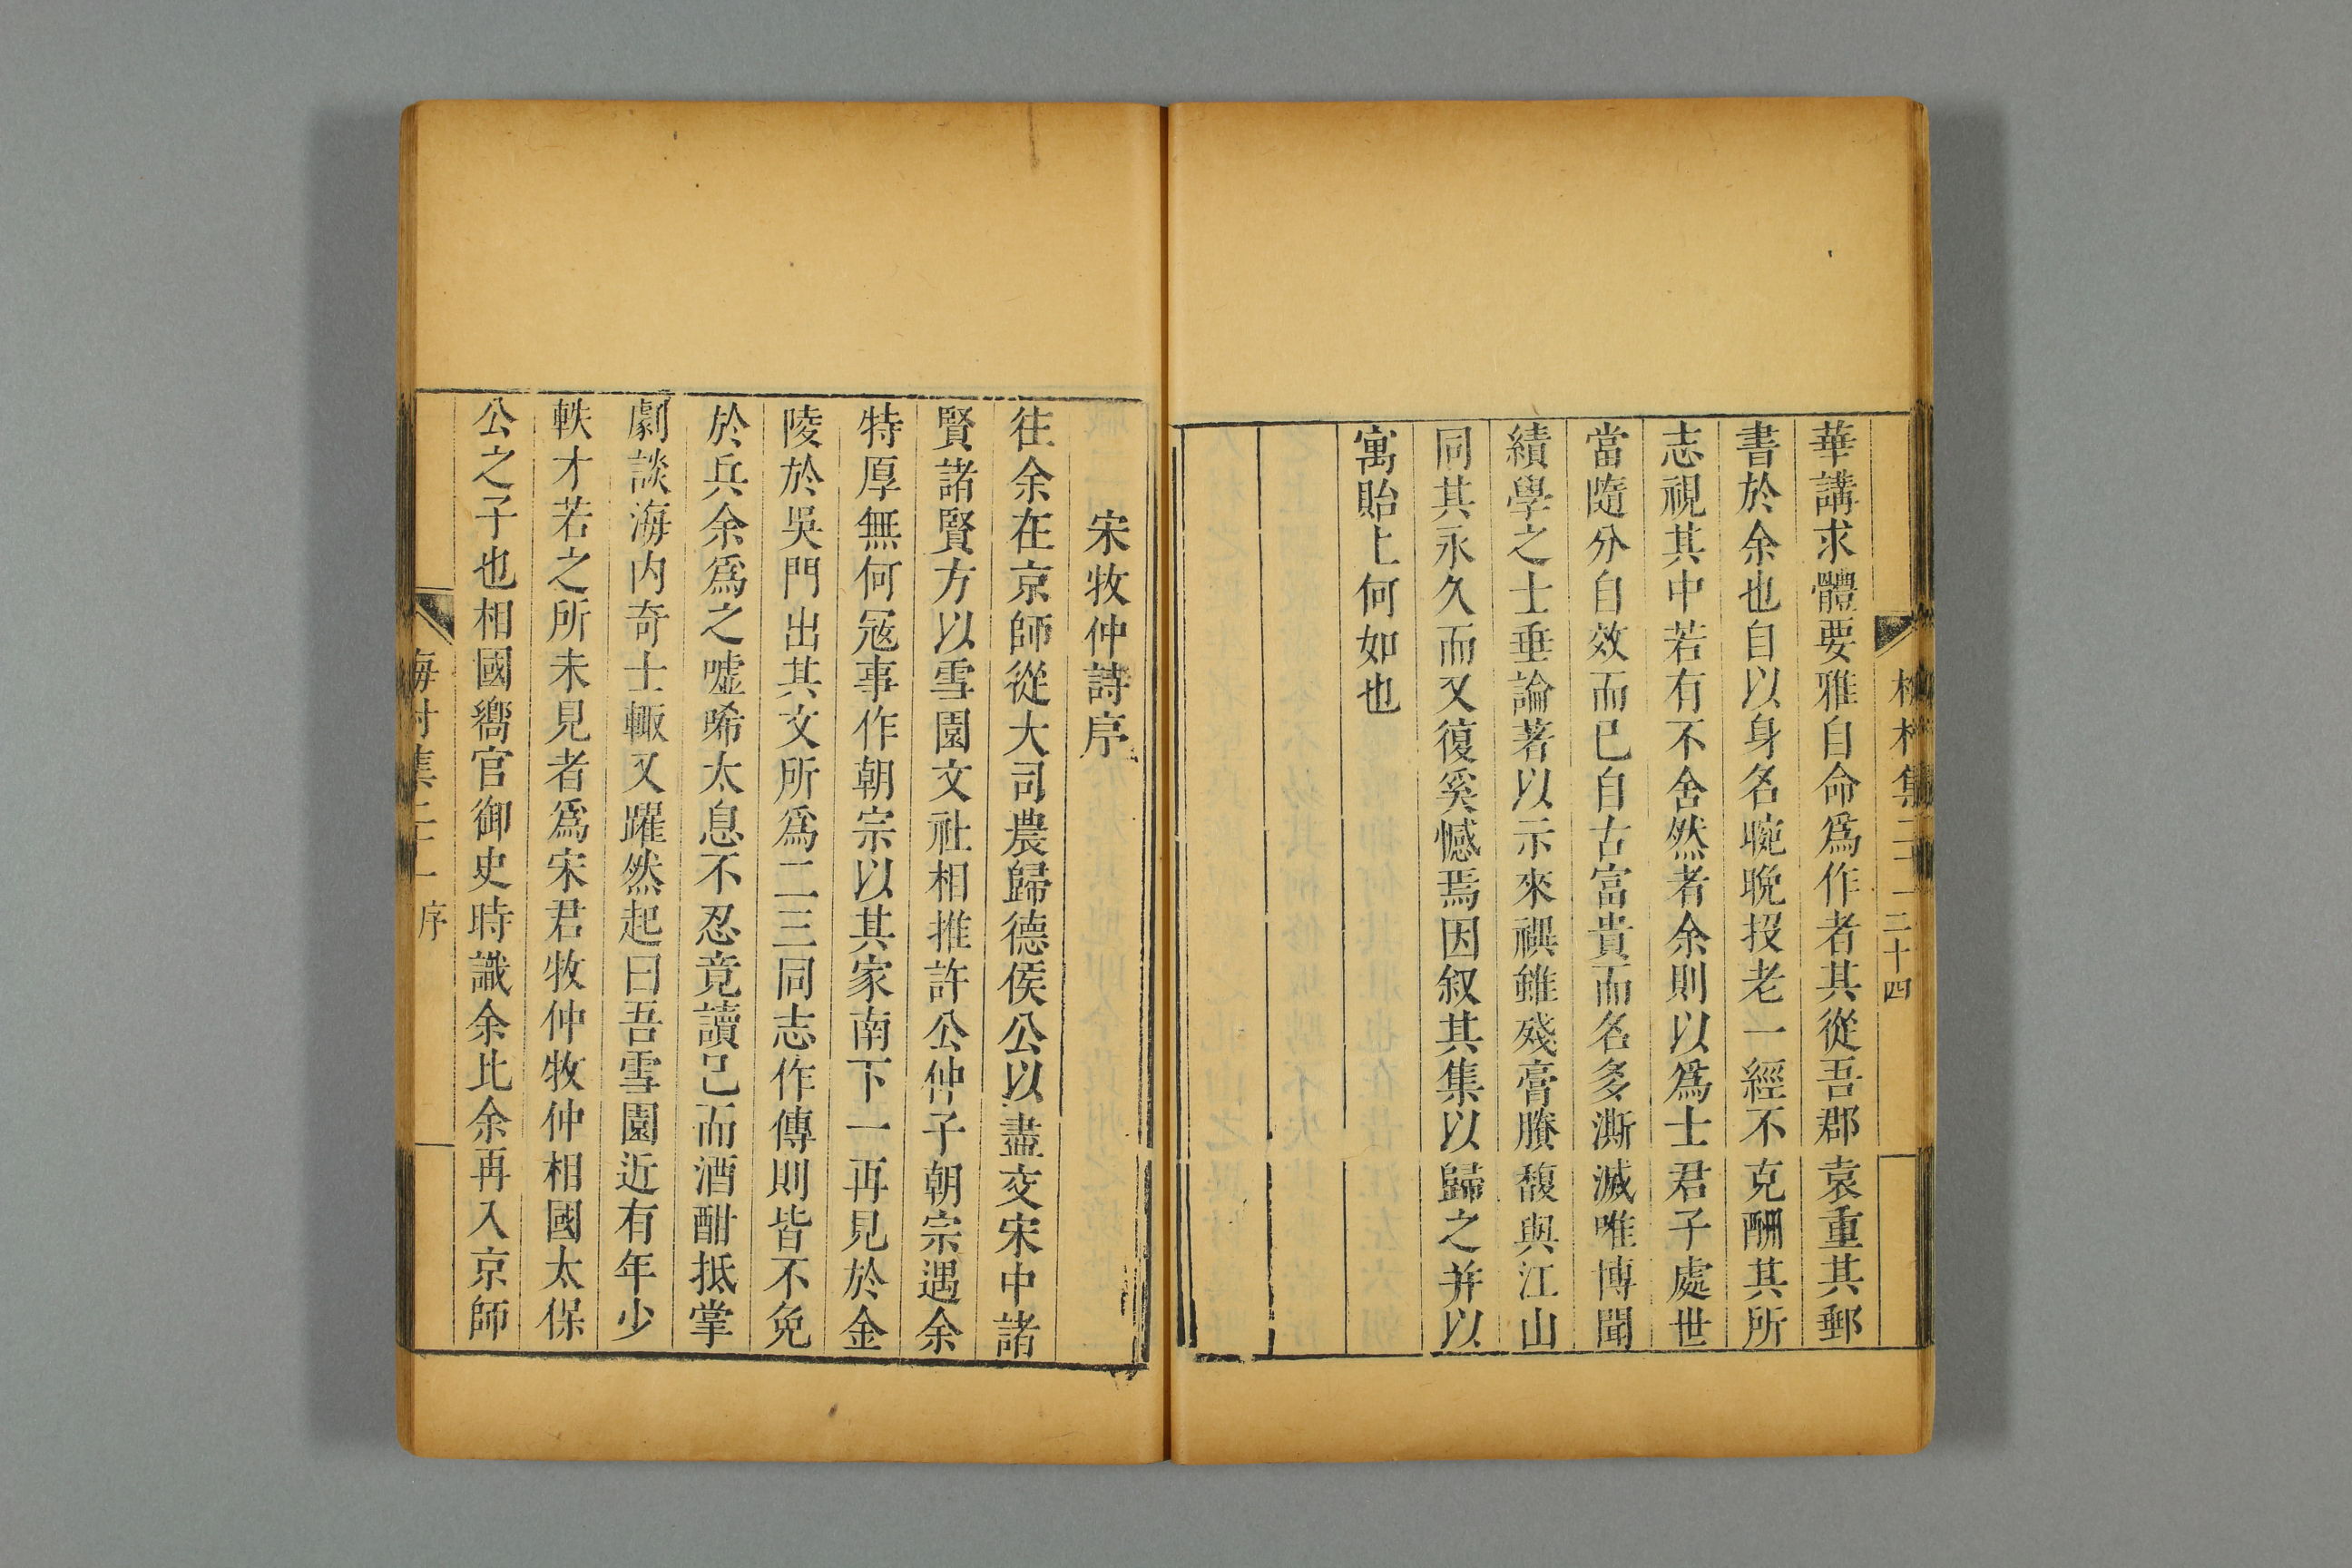 二十四
華講求體要雅自命爲作者其從吾郡袁重其郵
書於余也自以身名晼晚投老一經不克酬其所
志視其中若有不舍然者余則以爲士君子處世
當隨分自效而已自古富貴而名多澌滅唯博聞
績學之士垂論著以示來禩雖殘膏賸馥與江山
同其永久而又復奚憾焉因叙其集以歸之并以
寓貽上何如也
宋牧仲詩序
往余在京師從大司農歸德侯公以盡交宋中諸
賢諸賢方以雪園文社相推許公仲子朝宗遇余
特厚無何冦事作朝宗以其家南下一再見於金
陵於吳門出其文所爲二三同志作傳則皆不免
於兵余爲之噓唏太息不忍竟讀已而酒酣抵掌
劇談海内奇士輙又躍然起曰吾雪園近有年少
軼才若之所未見者爲宋君牧仲牧仲相國太保
公之子也相國嚮官御史時識余比余再入京師
序